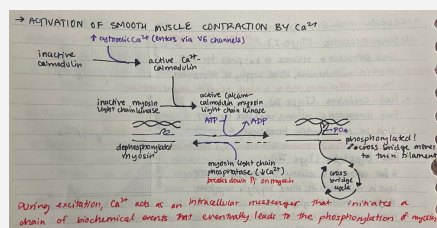 → ACTIVATION OF SMOOTH MUSCLE CONTRACTION BY Ca²⁺
↑ cytosolic Ca²⁺ (enters via VG channels)
inactive
calmodulin
active Ca²⁺-
calmodulin
inactive myosin
light chain kinase
active calcium-
calmodulin myosin
light chain kinase
ATP
ADP
dephosphorylated
myosin
PO₄
phosphorylated!
cross bridge moves
to thin filament
myosin light chain
phosphatase (↓Ca²⁺)
breaks down Pi on myosin
cross
bridge
cycle
During excitation, Ca²⁺ acts as an intracellular messenger that initiates a
chain of biochemical events that eventually leads to the phosphorylation of myosin